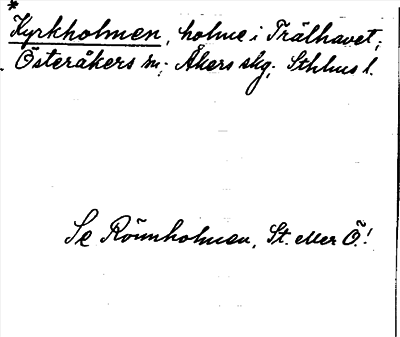 *
Kyrkholmen, holme i Trälhavet;
Österåkers sn; Åkers skg; Sthlms l.
Se Rönnholmen, St. eller Ö.!